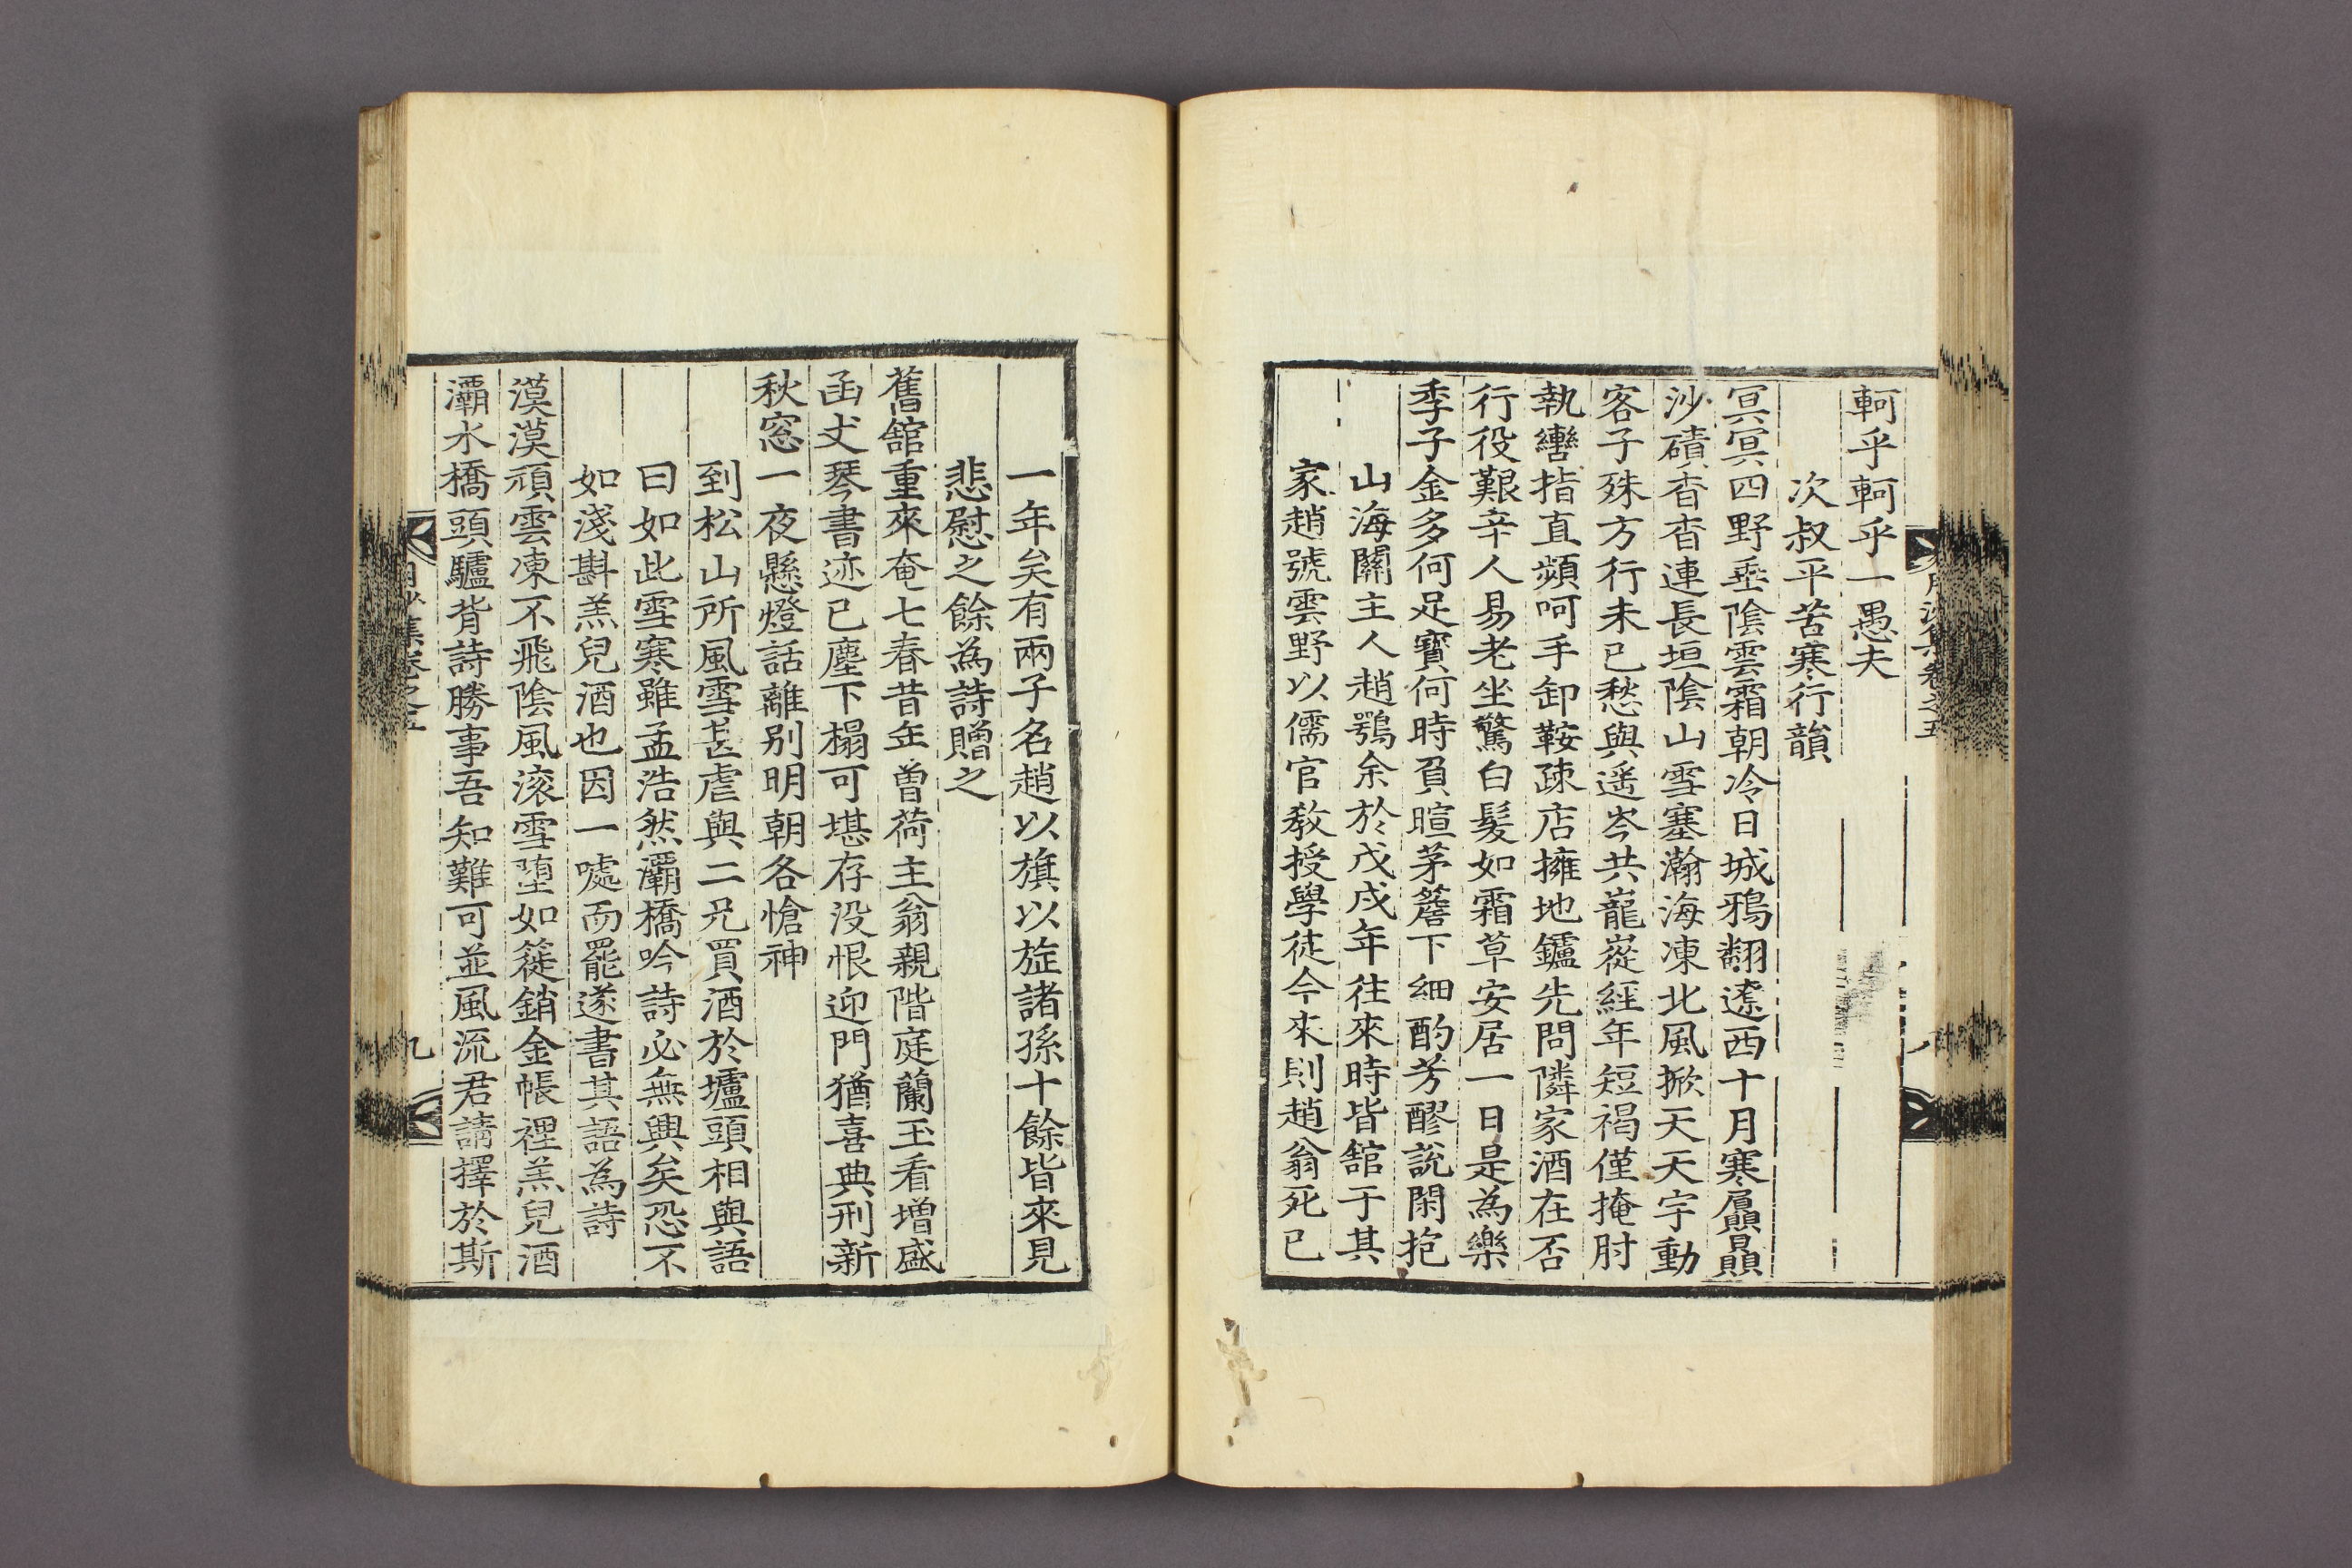 月沙集卷之五
軻乎軻乎一愚夫
次叔平苦寒行韻
冥冥四野垂陰雲霜朝冷日城鴉翻遼西十月寒贔屭
沙磧杳杳連長垣陰山雪塞瀚海凍北風掀天天宇動
客子殊方行未已愁與遥岑共巃嵸經年短褐僅掩肘
執轡指直頻呵手卸鞍疎店擁地鑪先問隣家酒在否
行役艱辛人易老坐驚白髮如霜草安居一日是為樂
季子金多何足寶何時負暄茅簷下細酌芳醪說閑抱
山海關主人趙鶚余於戊戌年往來時皆舘于其
家趙號雲野以儒官教授學徒今來則趙翁死已
一年矣有兩子名趙以旗以旋諸孫十餘皆來見
悲慰之餘為詩贈之
舊舘重來奄七春昔年曾荷主翁親階庭蘭玉看增盛
函丈琴書迹已塵下榻可堪存没恨迎門猶喜典刑新
秋窓一夜懸燈話離别明朝各愴神
到松山所風雪甚虐與二兄買酒於壚頭相與語
曰如此雪寒雖孟浩然灞橋吟詩必無興矣恐不
如淺斟羔兒酒也因一噱而罷遂書其語為詩
漠漠頑雲凍不飛陰風滚雪堕如簁銷金帳裡羔兒酒
灞水橋頭驢背詩勝事吾知難可並風流君請擇於斯
月沙集卷之五
九